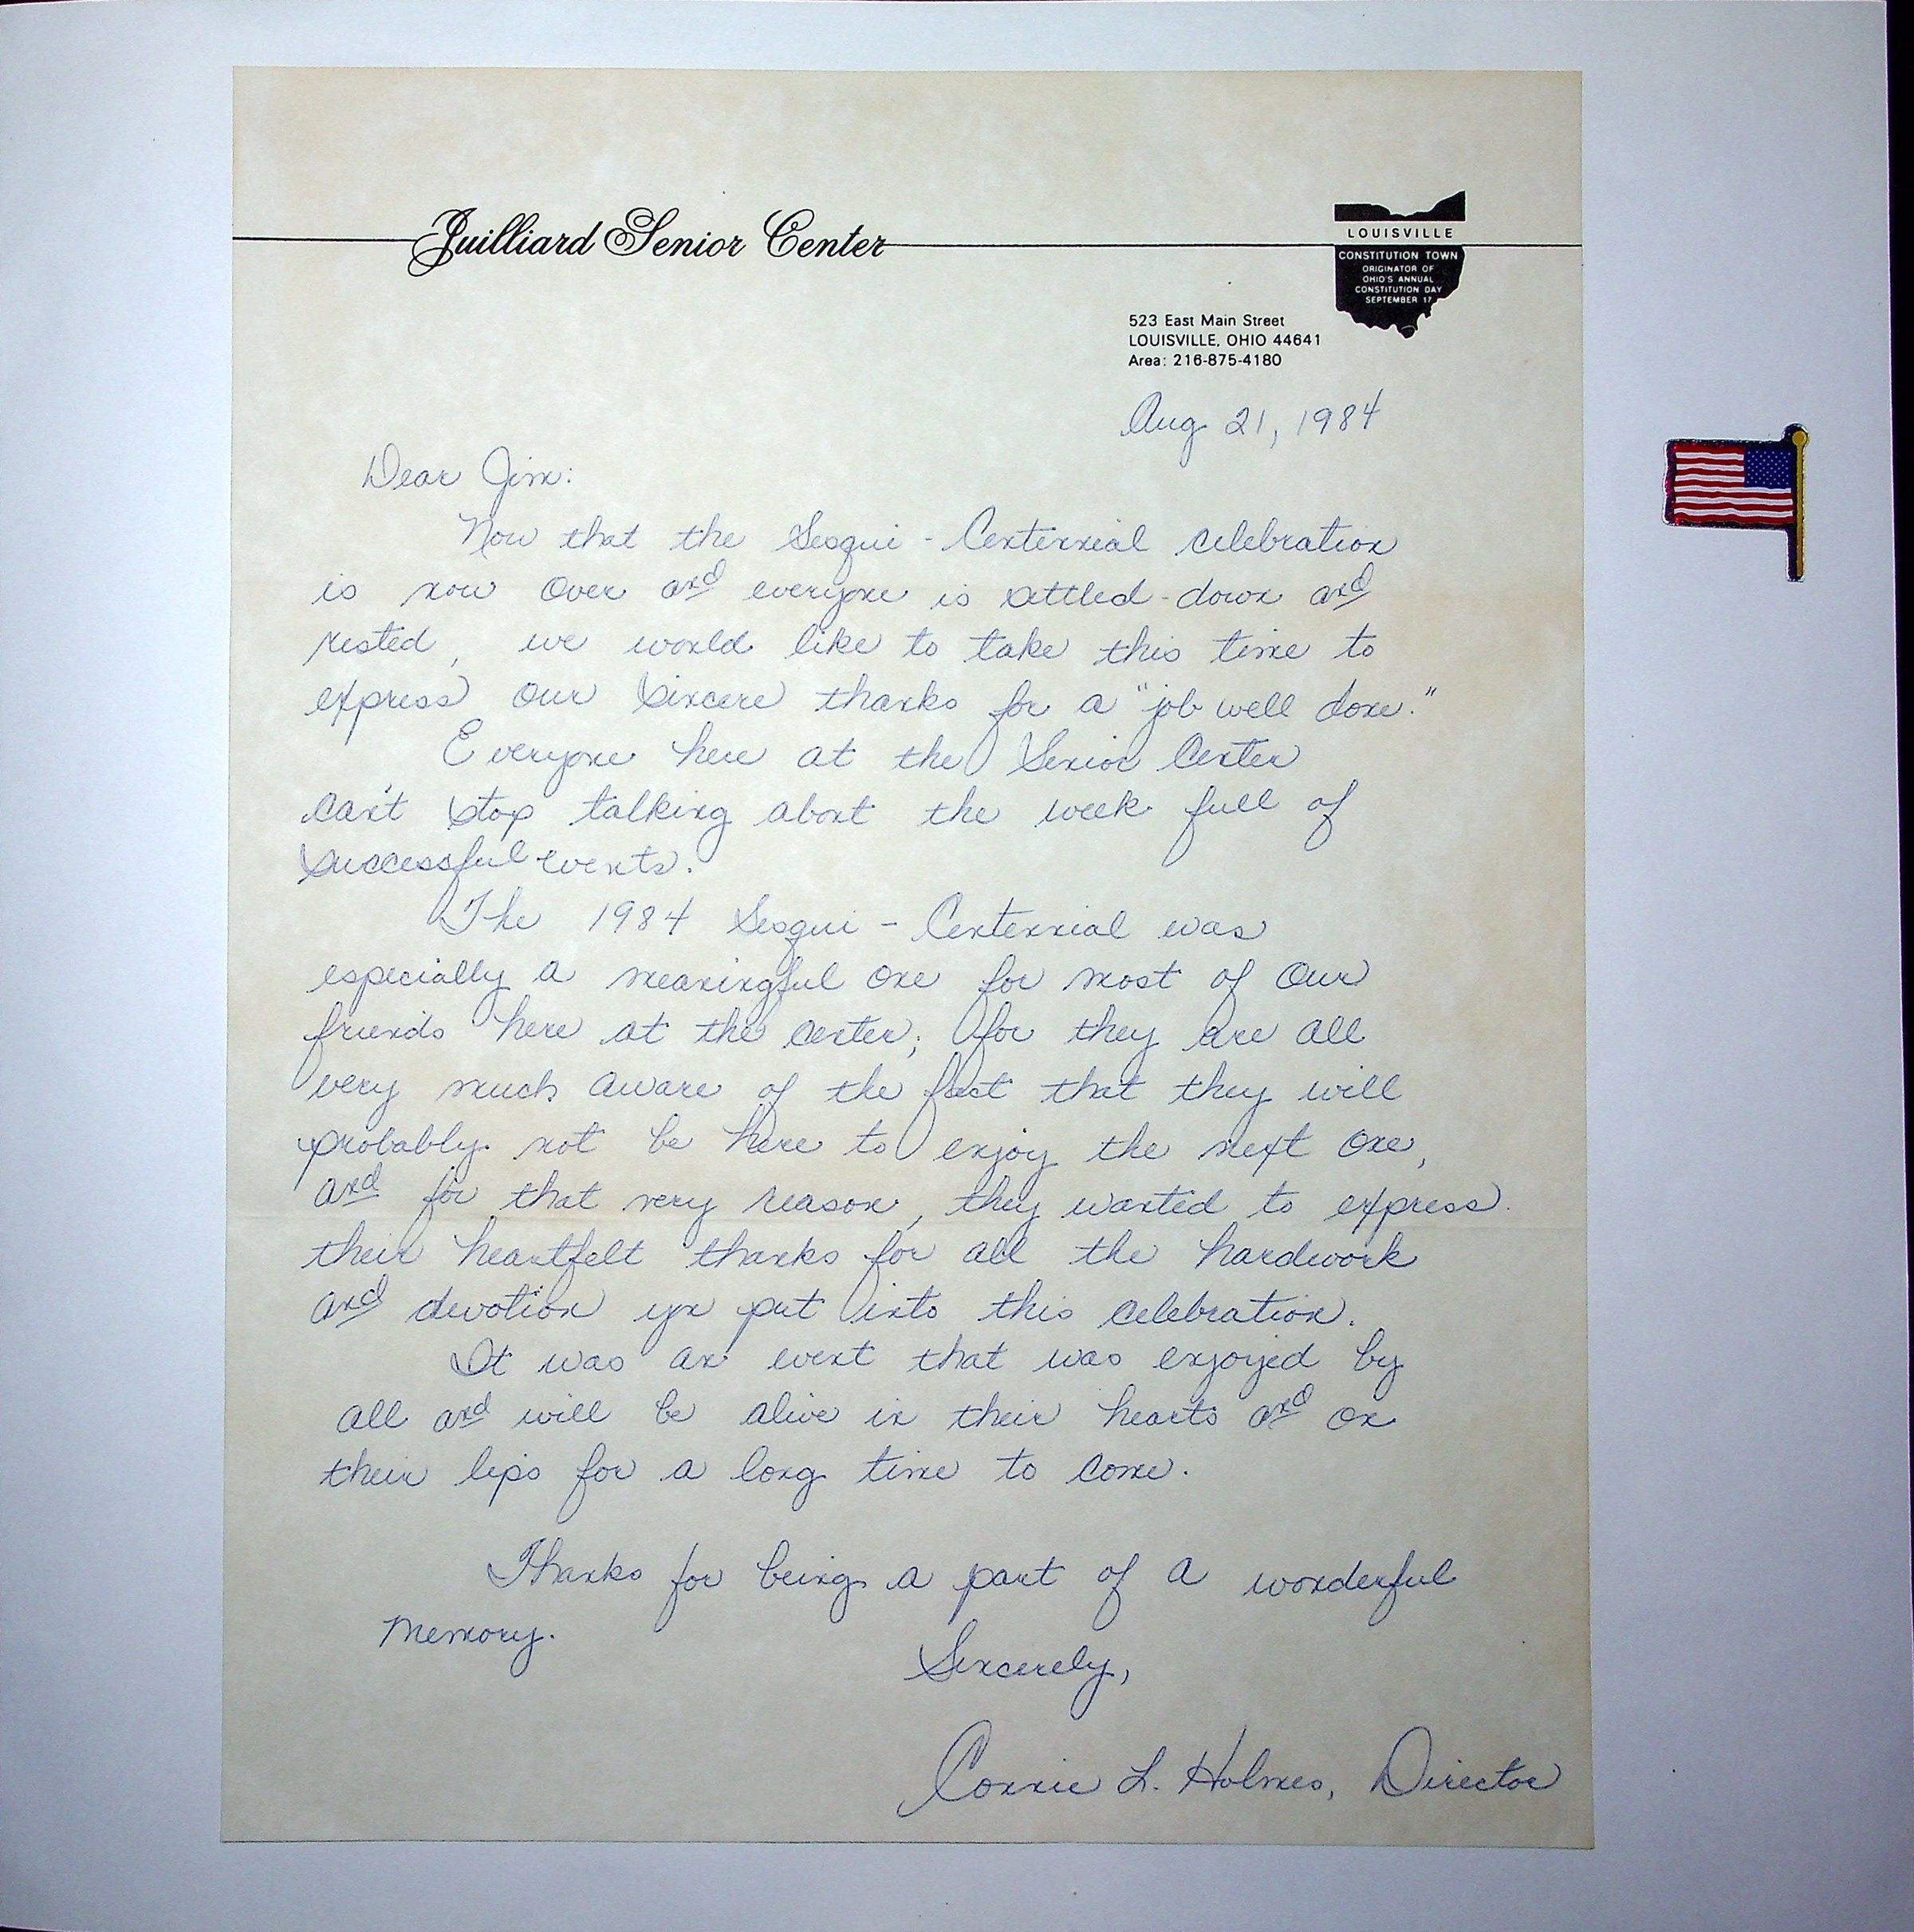 Juilliard Senior Center
LOUISVILLE
CONSTITUTION TOWN
ORIGINATOR OF
OHIO'S ANNUAL
CONSTITUTION DAY
SEPTEMBER 17
523 East Main Street
LOUISVILLE, OHIO 44641
Area: 216-875-4180
Aug 21, 1984
Dear Jim:
Now that the Sesqui-Centennial celebration
is now over and everyone is settled-down and
rested, we would like to take this time to
express our sincere thanks for a "job well done."
Everyone here at the Senior Center
can't stop talking about the week full of
successful events.
The 1984 Sesqui-Centennial was
especially a meaningful one for most of our
friends here at the center; for they are all
very much aware of the fact that they will
probably not be here to enjoy the next one,
and for that very reason, they wanted to express
their heartfelt thanks for all the hardwork
and devotion you put into this celebration.
It was an event that was enjoyed by
all and will be alive in their hearts and on
their lips for a long time to come.
Thanks for being a part of a wonderful
memory.
Sincerely,
Connie L. Holmes, Director